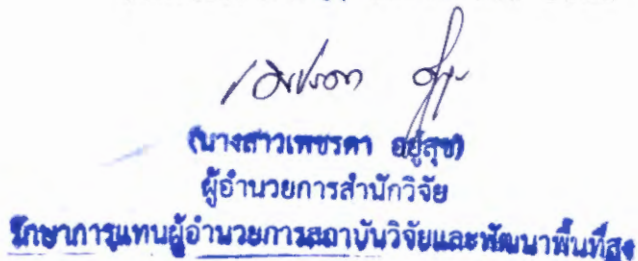 (นางสาวเพชรดา อยู่สุข)
ผู้อำนวยการสำนักวิจัย
รักษาการแทนผู้อำนวยการสถาบันวิจัยและพัฒนาพื้นที่สูง